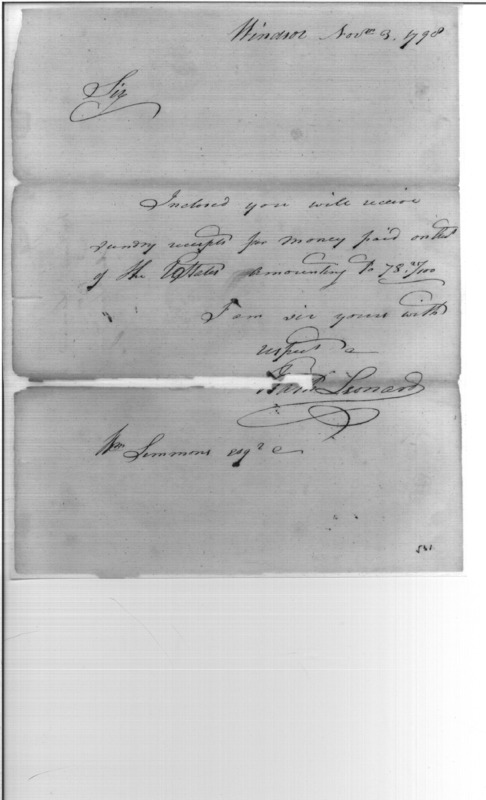 Windsor Novm 3. 1798
Sir
Inclosed you will receive
sundry receipts for money paid
of the States amounting to 78
I am sir yours with
respect
Leonard
Wm Simmons esqr
531